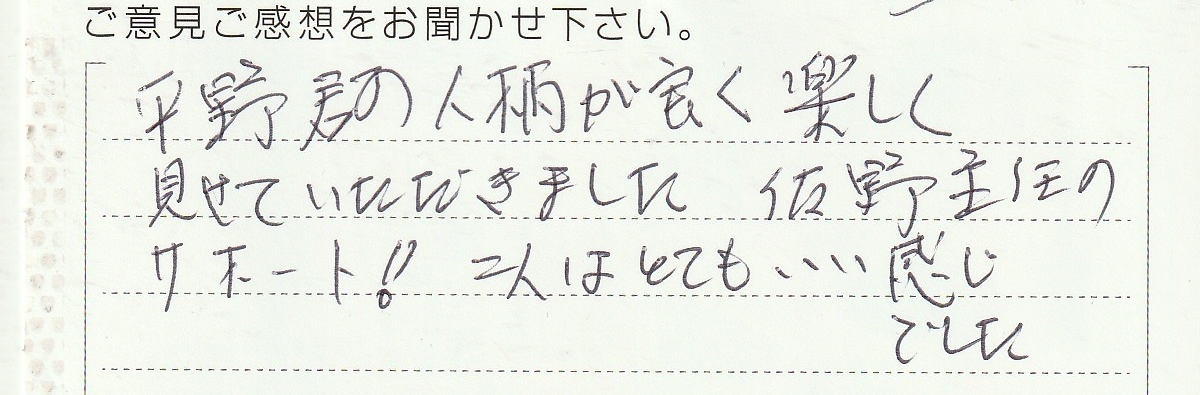 ご意見ご感想をお聞かせ下さい。
平野君の人柄が良く楽しく
見せていただきました 佐野主任の
サポート!! 二人はとてもいい感じ
でした